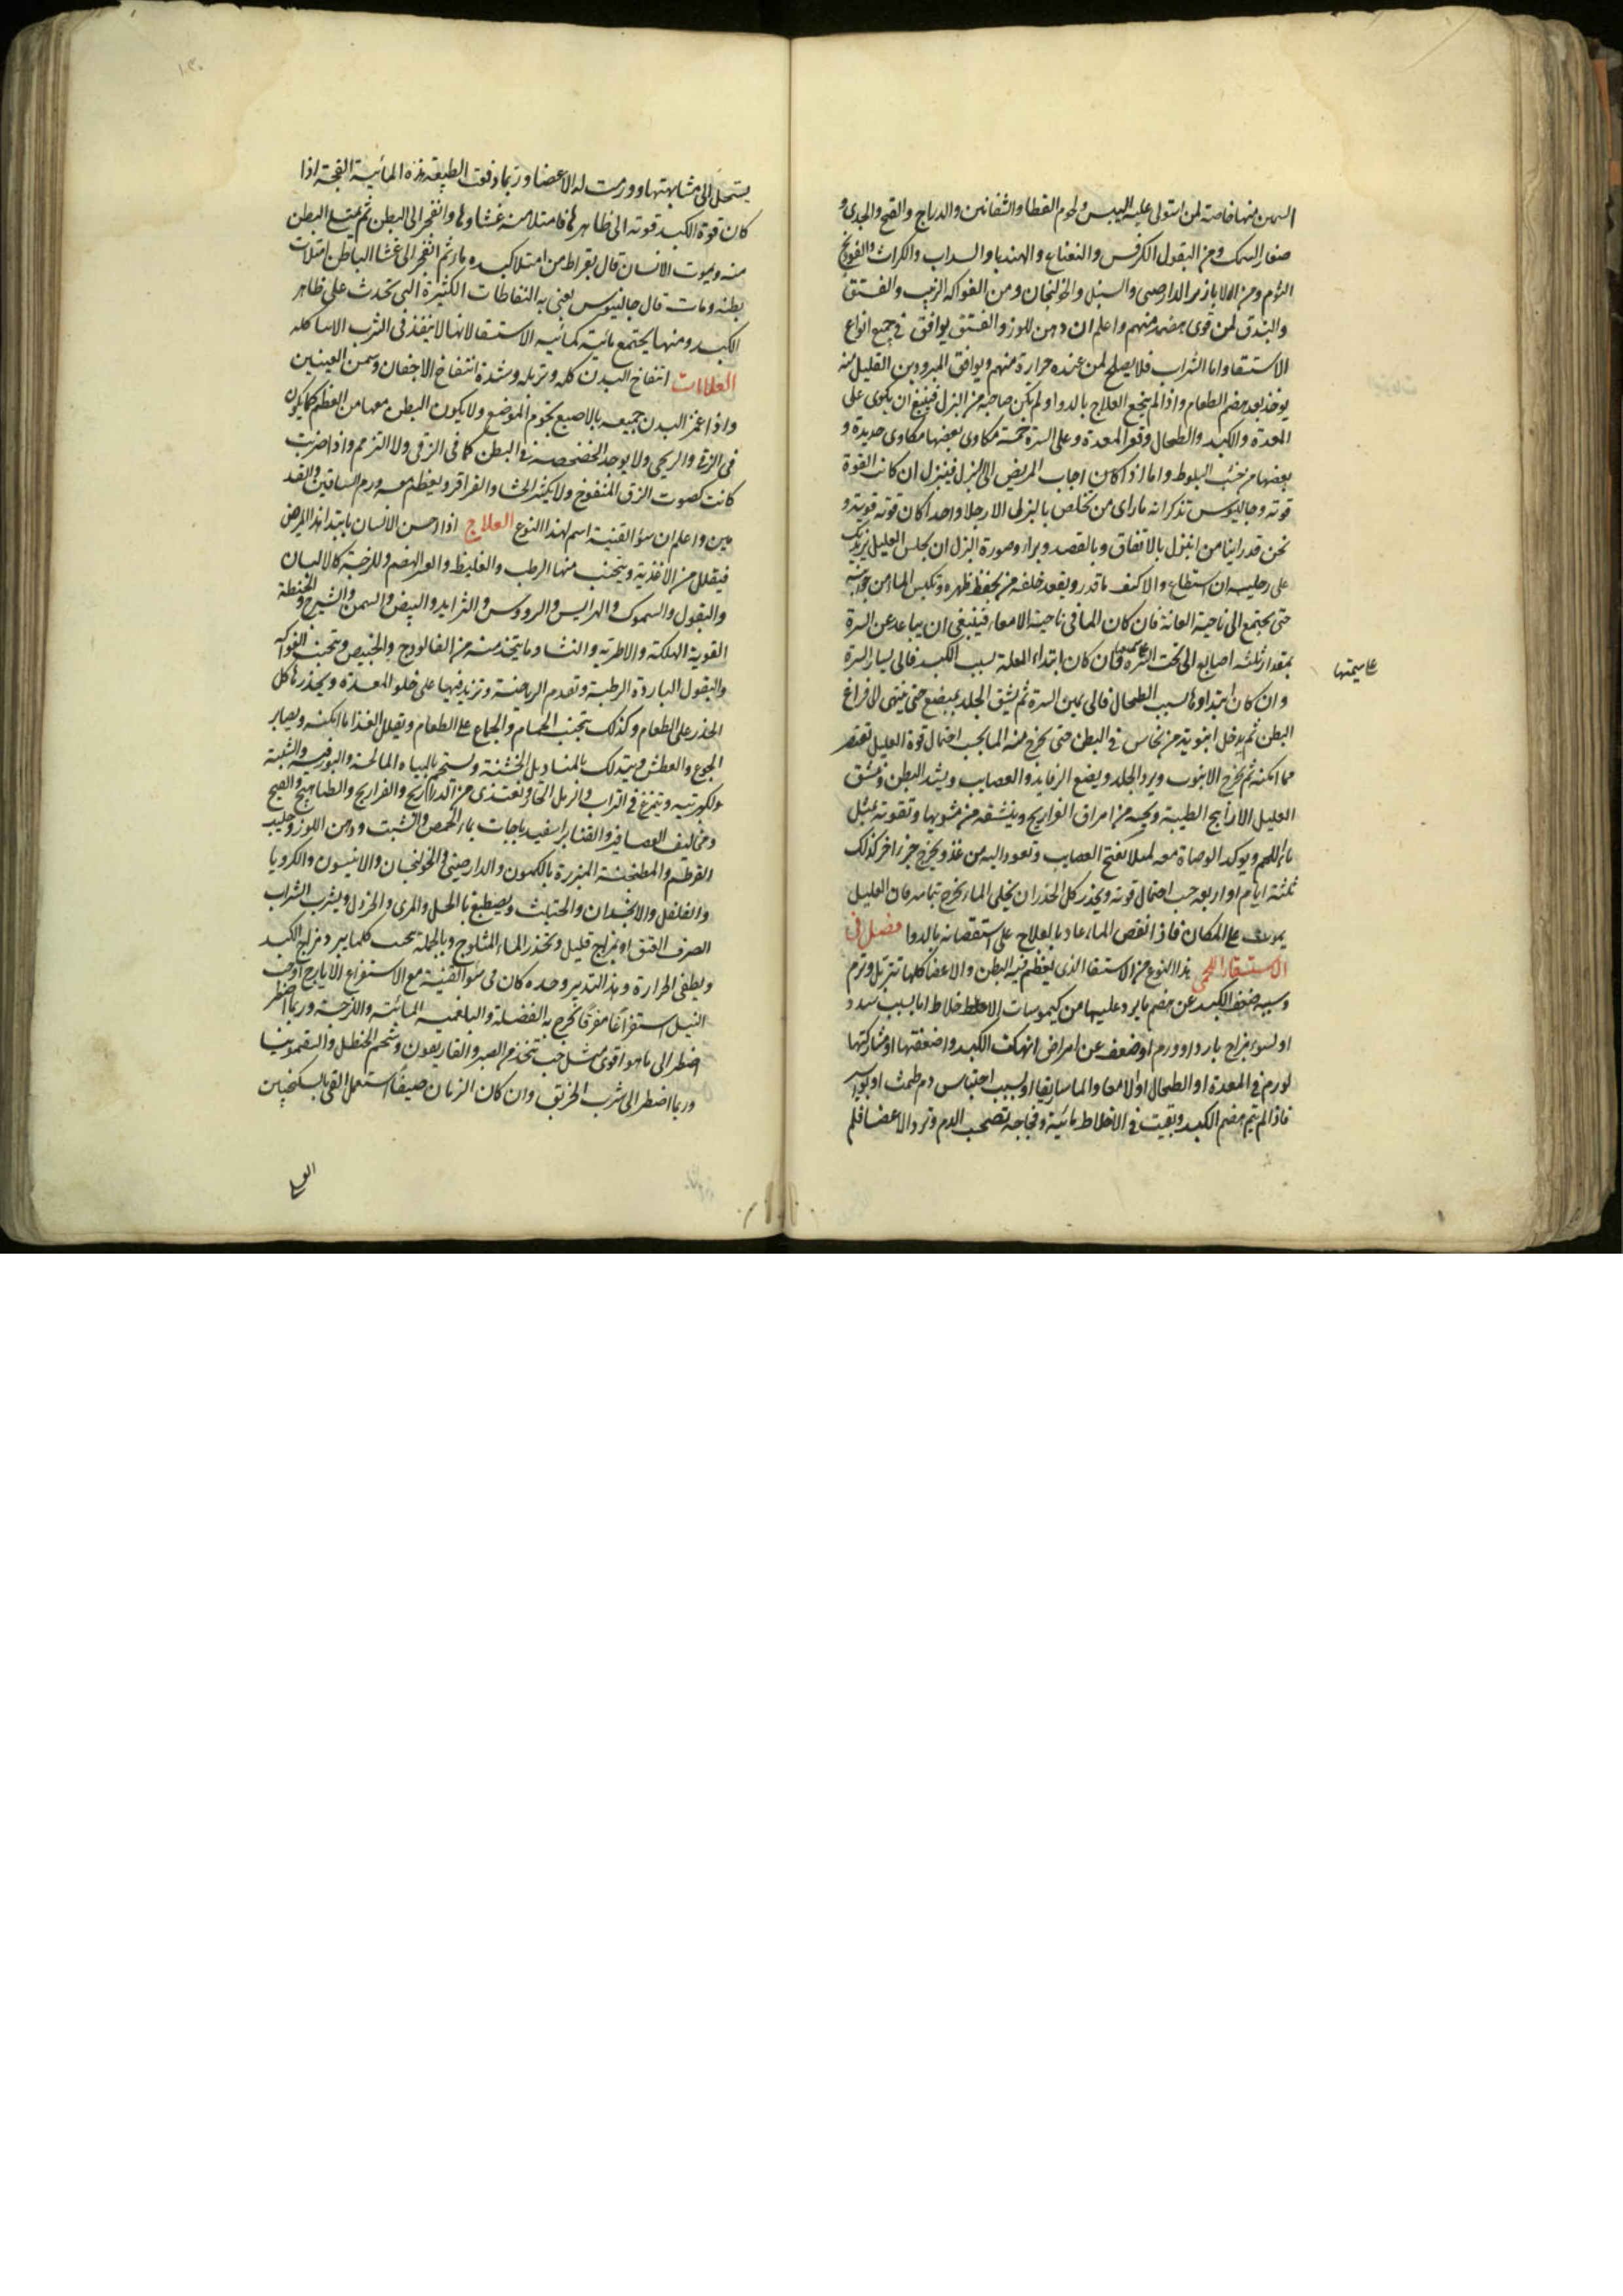 السمن منها خاصة لمن استولى عليه اليبس ولحوم القطا والشفانين والدراج والقبج والجدى و
صغار السمك ومن البقول الكرفس والنعناع والهندبا والسداب والكراث والفودنج
الثوم ومن الابازير الدارصينى والسنبل والخولنجان ومن الفواكه الزبيب والفستق
والبندق لمن قوى هضمه منهم واعلم ان دهن اللوز والفستق يوافق فى جميع انواع
الاستسقا واما الشراب فلا يصلح لمن عنده حرارة منهم ويوافق المبرودين القليل منه
يوخذ بعد هضم الطعام واذا لم ينجع العلاج بالدوا ولم يكن صاحبه من البزل فينبغى ان يكوى على
المعدة والكبد والطحال وقعر المعدة وعلى السرة خمسة مكاوى بعضها مكاوى حديد و
بعضها من خشب البلوط واما اذا كان اجاب المريض الى البزل فيبزل ان كانت القوة
قوية وجالينوس تذكر انه ما راى من تخلص بالبزل الا رجلا واحدا كان قوته قوية و
نحن قد راينا من انبزل بالاتفاق وبالقصد وبرا وصورة البزل ان يجلس العليل
على رجليه ان استطاع والا كيف ما قدر ويقعد خلفه من يحفظ ظهره وتكبس الما من جوانبه
حتى يجتمع الى ناحية العانة فان كان الما فى ناحية الامعاء فينبغى ان يباعد عن السرة
بمقدار ثلثه اصابع الى تحت السرة فان كان ابتداء العلة بسبب الكبد فالى يسار السرة
على سيمتها
وان كان ابتداوها بسبب الطحال فالى يمين السرة ثم يشق الجلد بمبضع حتى ينتهى الى فراغ
البطن ثم يدخل انبوبة من نحاس فى البطن حتى يخرج منه الما بحسب احتمال قوة العليل
مما امكنه ثم يخرج الانبوب ويرد الجلد ويضع الرفايد والعصايب ويشد البطن وينشق
العليل الارابيح الطيبة ويحسه من امراق الفراريج وينشقه من مشويها وتقويه بمثل
ماء اللحم ويوكد الوصاة معه لئلا يفتح العصايب وتعود اليه من غد ويخرج جزء اخر كذلك
ثلثة ايام او اربعه بحسب احتمال قوته ويحذر كل الحذر ان يخلى الماء يخرج بتمامه فان العليل
يموت على المكان فاذا نقص الماء عاد بالعلاج على استقصائه بالدوا فصل فى
الاستسقاء اللحمى هذا النوع من الاستسقا الذى يعظم فيه البطن والاعضا كلها تتربل وترم
وسببه ضعف الكبد عن هضم ما يرد عليها من كيموسات الاخلاط اما بسبب سدد
او لسوء مزاج بارد او ورم او ضعف عن امراض انهكت الكبد واضعفتها او مشاركتها
لورم فى المعدة او الطحال او الامعا والماساريقا او بسبب احتباس دم طمث او بواسير
فاذا لم يتم هضم الكبد وبقيت فى الاخلاط مائية وفجاجة تصحب الدم وترد الاعضا فلم
يستحل الى مشابهتها وورمت له الاعضا وربما دفعت الطبيعة هذه المائية الفجة اذا
كان قوة الكبد قوية الى ظاهرها فامتلا منه غشاوها وانفجر الى البطن ثم يمتلى البطن
منه ويموت الانسان قال بقراط من امتلا كبده ماء ثم انفجر الى غشا الباطن امتلات
بطنه ومات قال جالينوس يعنى به النفاطات الكثيرة التى تحدث على ظاهر
الكبد ومنها يجتمع مائية كمائية الاستسقا لانها لا ينفذ فى الثرب الاسا كله
العلامات انتفاخ البدن كله وتربله وشدة انتفاخ الاجفان وسمن العينين
واذا غمز البدن جميعه بالاصبع يخوم الموضع ولا يكون البطن معها من العظم كما يكون
فى الزقى والريحى ولا يوجد الخضخضة فى البطن كما فى الزقى ولا الترمم واذا ضربت
كانت كصوت الزق المنفوخ ولا يكثر الجشا والقراقر ويعظم معه ورم الساقين والقد
مين واعلم ان سؤ القنية اسم لهذا النوع العلاج اذا احسن الانسان بابتدا هذا المرض
فيقلل من الاغذية ويتجنب منها الرطب والغليظ والعسر الهضم وللزجة كالالبان
والبقول والسموك والهرايس والرووس والثرايد والبيض والسمن والشيرج والحنطة
القوية الهلكة والاطرية والنشا وما يتخذ منه من الفالودج والخبيص ويتجنب الفواكه
والبقول الباردة الرطبة وتقدم الرياضة وتزيد فيها على خلو المعدة ويحذرها كل
الحذر على الطعام وكذلك يتجنب الحمام والجماع على الطعام ويقلل الغذا ما امكنه ويصابر
الجوع والعطش ويتدلك بالمناديل الخشنة ويستحم بالمياه المالحة والبورقية والشبية
والكبريتية ويتمرغ فى التراب والرمل الحار ويغتذى من الدراريج والفراريج والطياهيج والقبج
ومخاليف العصافير والقنابر اسفيدباجات بماء الحمص والشبت ودهن اللوز وحليب
القرطم والمطجنة المبزرة بالكمون والدارصينى والخولنجان والانيسون والكرويا
والفلفل والانجدان والحلتيث ويصطبغ بالخل والمرى والخردل ويشرب الشراب
الصرف العتق او بمزاج قليل ويحذر الماء المثلوج وبالجملة يجب كلما يبرد مزاج الكبد
ويطفى الحرارة وهذا التدبير وحده كان فى سو القنية مع الاستفراغ الايارج او حب
النيل استفراغا مفرقا يخرج به الفضلة والبلغمية المائية واللزجة وربما اضطر
اضطر الى ما هو اقوى مثل حب يتخذ من الصبر والغاريقون وشحم الحنظل والسقمونيا
وربما اضطر الى شرب الخربق وان كان الزمان صيفا استعمل القى بالسكنجبين